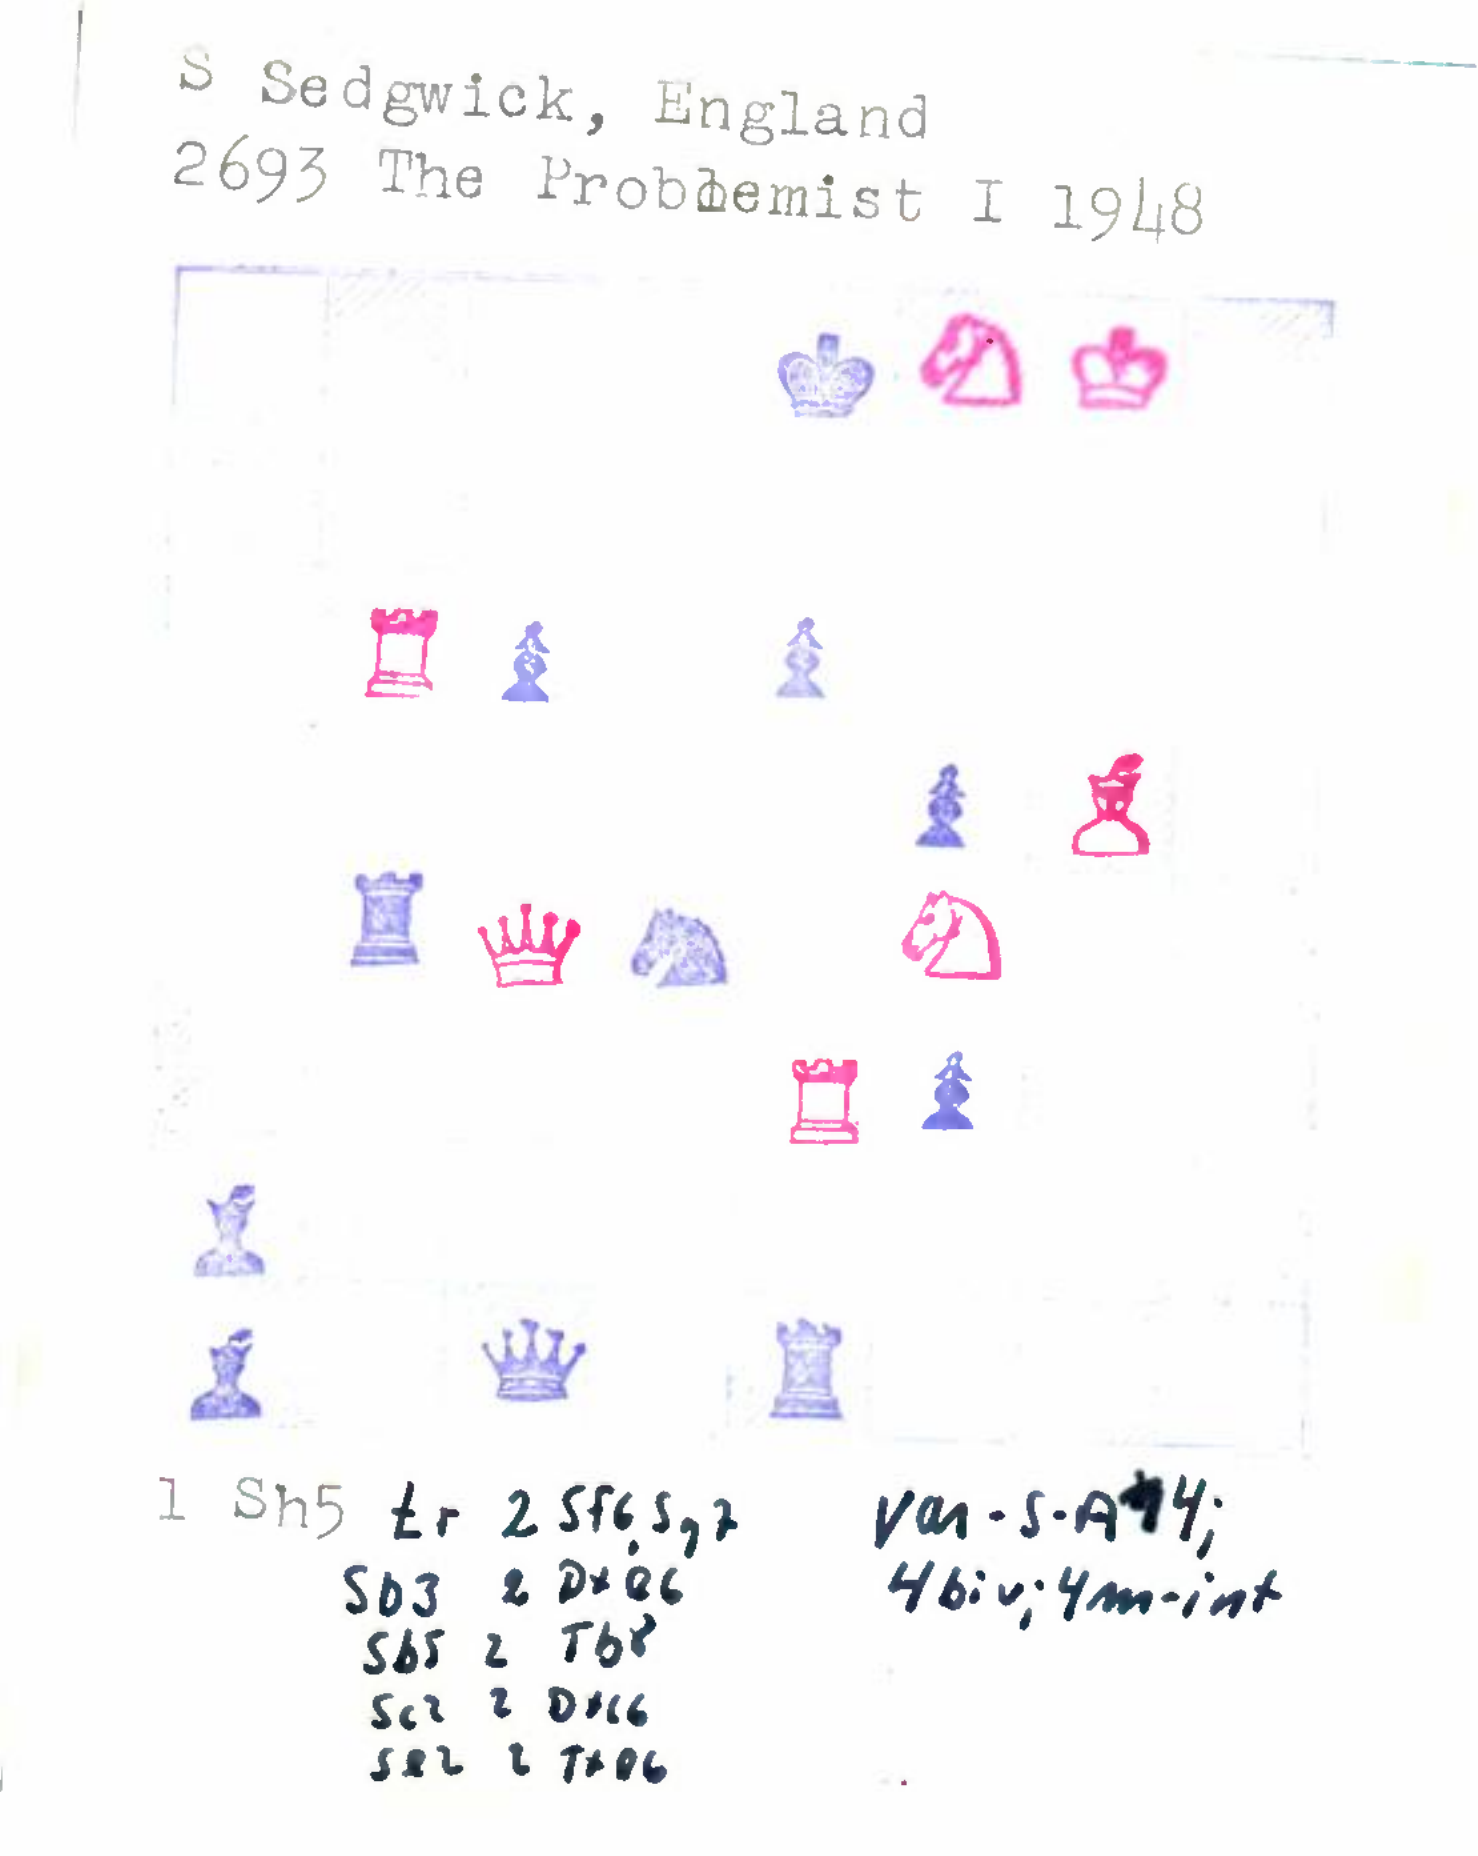 S Sedgwick, England
2693 The Problemist I 1948
1 Sh5 tr 2 Sf6, Sg7
Sb3 2 Dxe6
Sb5 2 Tb8
Sc2 2 Dxc6
Se2 2 Txe6
var-S-A 4;
4biv; 4m-int